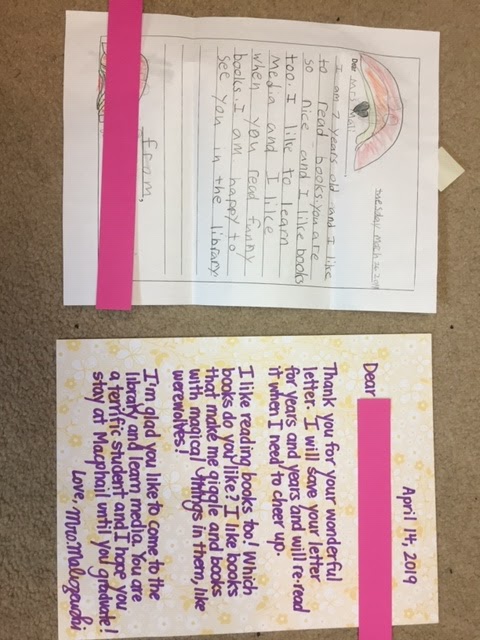 Dear
I am 7 years old and I like
to read books. you are
so nice and I like books
too. I like to learn
Media and I like
when you read funny
books. I am happy to
see you in the library.
from,
April 14, 2019
Dear
Thank you for your wonderful
letter. I will save your letter
for years and years and will re-read
it when I need to cheer up.
I like reading books too! Which
books do you like? I like books
that make me giggle and books
with magical things in them, like
werewolves!
I'm glad you like to come to the
library and learn media. You are
a terrific student and I hope you
stay at Macphail until you graduate!
Love, Mrs.